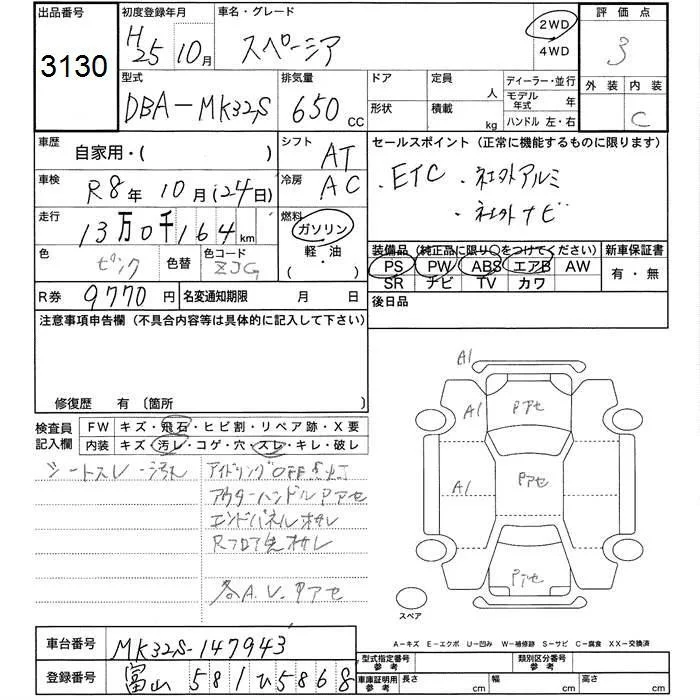 出品番号
3130
初度登録年月
H25 10月
車名・グレード
スペーシア
2WD
4WD
評価点
3
外装 内装
C
型式
DBA-MK32S
排気量
650 cc
ドア
形状
定員 人
積載 kg
ディーラー・並行
モデル年式 年
ハンドル 左・右
車歴
自家用・( )
シフト
AT
セールスポイント (正常に機能するものに限ります)
・ETC ・社外アルミ
・社外ナビ
車検
R8年 10月(24日)
冷房
AC
走行
13万0千164km
燃料
ガソリン
軽・油
( ・ )
色
ピンク
色替
色コード
ZJG
装備品 (純正品に限り○をつけてください)
PS PW ABS エアB AW
SR ナビ TV カワ
新車保証書
有・無
R券 9770円
名変通知期限 月 日
後日品
注意事項申告欄 (不具合内容等は具体的に記入して下さい)
修復歴 有 〔箇所 〕
検査員記入欄
FW キズ・飛石・ヒビ割・リペア跡・X要
内装 キズ・汚レ・コゲ・穴・スレ・キレ・破レ
シートスレ・汚れ
アイドリングOFF点灯
アウターハンドルPアセ
エンドパネルオサレ
Rフロア先オサレ
各A.U.Pアセ
A1
A1
Pアセ
A1
Pアセ
Pアセ
スペア
A-キズ E-エクボ U-凹み W-補修跡 S-サビ C-腐食 XX-交換済
車台番号
MK32S-147943
登録番号
富山 581 ひ 5868
型式指定番号 参考
類別区分番号 参考
車庫証明用 参考
長さ cm
幅 cm
高さ cm